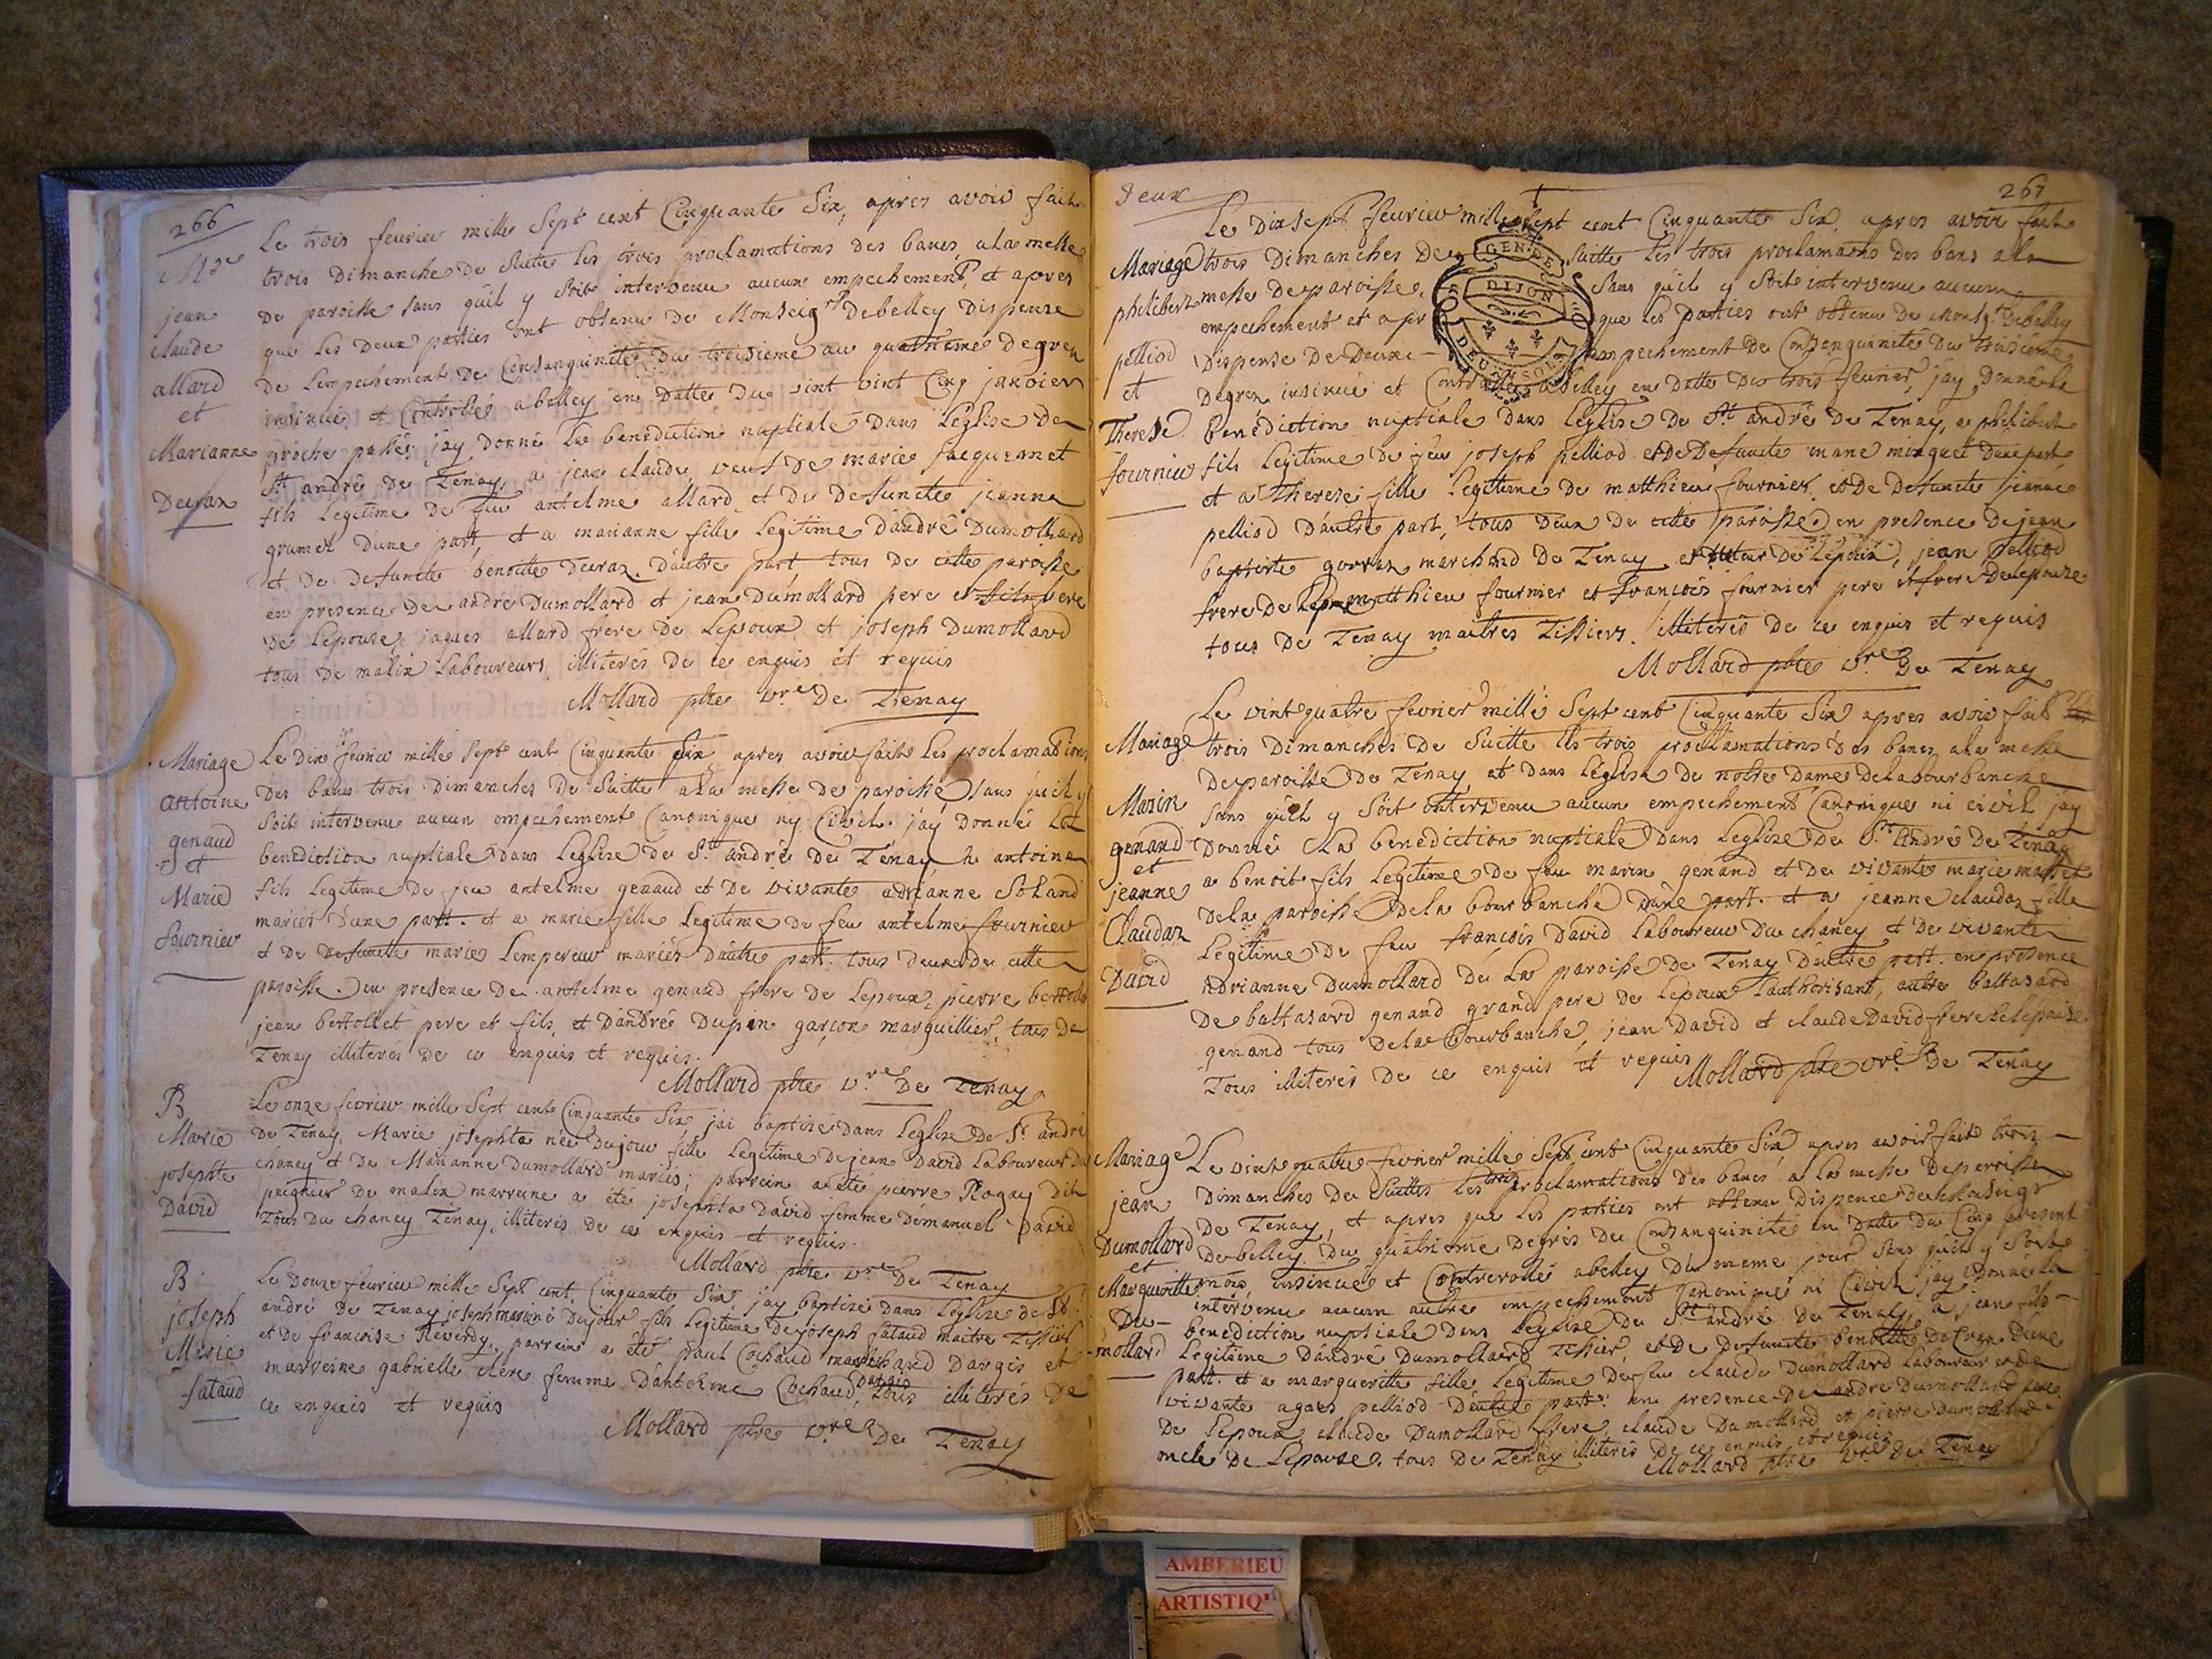 266
Mge
jean
claude
allard
et
Marianne
Decran
Le trois feuvrier mille sept cent Cinquante Six, apres avoir fait
trois Dimanche de Suitte les trois proclamations des bancs, ala messe
de paroisse sans qu'il y soit intervenu aucun empechement, et apres
que les deux parties ont obtenu de Monseigr De belley Dispense
de Lempechement de Consanguinité du troisieme au quatrieme degrez
insinué et Controllé a belley en datte du vint Cinq janvier
proche passé; jay donné La benediction nuptiale dans L'église de
St andré de Tenay, a jean claude veuf de marie jacquemet
fils Legitime de feu antelme allard et de defuncte jeanne
grumet dune part, et a marianne fille Legitime d'andré Dumollard
et de defuncte benoitte decran. D'autre part tous de cette paroisse
en presence de andré Dumollard et jean Dumollard pere et frere
de Lepouse, jaques allard frere de Lepoux et joseph Dumollard
tous de malix Laboureurs, illiterés de ce enquis et requis
Mollard ptre vre De Tenay
Mariage
antoine
genaud
et
Marie
fournier
Le Dix feuvrier mille sept cent Cinquante Six apres avoir fait Les proclamations
des bancs trois dimanches de Suitte ala messe de paroisse sans quil y
soit intervenu aucun empechement Canonique ny Civil. j'ay donné La
benediction nuptiale dans Leglise de St. andré de Tenay a antoine
fils Legitime de feu antelme genaud et de vivante adrianne Soland
mariés d'une part. et a marie fille Legitime de feu antelme fournier
et de defuncte marie Lempereur mariés d'autre part. tous deux de cette
paroisse. en presence de antelme genaud frere de Lepoux, pierre bertollet
jean bertollet pere et fils, et D'andré Dupin garçon marguillier, tous de
Tenay illiterés de ce enquis et requis.
Mollard ptre vre De Tenay
B
Marie
josephte
David
Le onze feuvrier mille Sept cent Cinquante Six j'ai baptisé dans Leglise De St. andré
de Tenay, Marie josephte née du jour fille Legitime de jean David Laboureur du
chaney et de Marianne Dumollard mariés; parrein a eté pierre Rogay dit
peignier de malix marreine a eté josephte David femme D'emanuel David
Tous du chaney Tenay, illiterés de ce enquis et requis.
Mollard ptre vre De Tenay
B
joseph
Marie
fataud
Le Douze feuvrier mille Sept cent Cinquante Six, jay baptisé dans Leglise de St.
andré de Tenay joseph marie né du jour fils Legitime de joseph fataud maitre Tissier
et de francoise Reverdy, parrein a eté paul Cochaud marchand Dargis et
marreine gabrielle clere femme D'antelme Cochaud, Dargis tous illiterés de
ce enquis et requis
Mollard ptre vre De Tenay
Deux
267
GEN DE DIJON
DEUX SOLS
Mariage
philibert
pelliod
et
Therese
fournier
Le Dix sept feuvrier mille sept cent Cinquante Six, apres avoir fait
trois Dimanches De Suitte Les trois proclamaons des bans ala
messe de paroisse, Sans qu'il y soit intervenu aucun
empechement et apr que les parties ont obtenu de Monsgr De belley
Dispense de deux empechement de Consanguinité du troisieme
Degrez insinué et Controllé a belley en datte du trois feuvrier, jay donné La
benediction nuptiale dans Leglise de St. andré de Tenay, a philibert
fils Legitime de feu joseph pelliod et de defuncte marie minguet dune part
et a Therese fille Legitime de matthieu fournier, et de defuncte jeanne
pelliod d'autre part, tous deux de cette paroisse. en presence de jean
baptiste gorraz marchand de Tenay et tuteur de Lepoux, jean pelliod
frere de Lepoux matthieu fournier et francois fournier pere et frere de lepouze
tous de Tenay maitres Tissiers, illiterés de ce enquis et requis
Mollard ptre vre De Tenay
Mariage
Marin
genand
et
jeanne
Claudaz
David
Le vint quatre fevrier mille Sept cent Cinquante Six apres avoir fait
trois Dimanches de Suitte les trois proclamations des bancs ala messe
De paroisse de Tenay, et dans L'église de notre dame de la bourbanche
sans qu'il y soit intervenu aucun empechement Canonique ni civil jay
donné La benediction nuptiale dans Leglise de St. andré de Tenay
a benoit fils Legitime de feu marin genand et de vivante marie masset
de la paroisse de la bourbanche d'une part. et a jeanne claudaz fille
Legitime de feu francois David Laboureur du chaney et de vivante
adrianne Dumollard de La paroisse de Tenay d'autre part. en presence
de baltasard genand grand pere de Lepoux L'authorisant, autre baltasard
genand tous de la bourbanche, jean David et claude David frere de lepouze
Tous illiterés de ce enquis et requis
Mollard ptre vre De Tenay
Mariage
jean
Dumollard
et
Marguerite
Du-
mollard
Le vint quatre fevrier mille Sept cent Cinquante Six apres avoir fait trois
Dimanches de Suittes Les trois proclamations des bancs a La messe de parroisse
de Tenay, et apres que les parties ont obtenu dispence de Monseigr
De belley du quatrieme degrés de Consanguinité en datte du Cinq present
mois, insinué et Controllé a belley du meme jour Sans qu'il y soit
intervenu aucun autre empechement Canonique ni Civil jay Donné La
benediction nuptiale dans Leglise de St andré de Tenay, a jean fils
Legitime D'andré Dumollard Tissier, et de defuncte benoitte De Cran D'une
part. et a marguerite fille Legitime de feu claude Dumollard Laboureur et de
vivante agaes pelliod d'autre part. en presence de andre Dumollard pere
de Lepoux, claude Dumollard frere, claude Dumollard et pierre Dumollard
oncle de Lepouze. tous de Tenay illiterés de ce enquis et requis
Mollard ptre vre De Tenay
AMBERIEU
ARTISTIQ